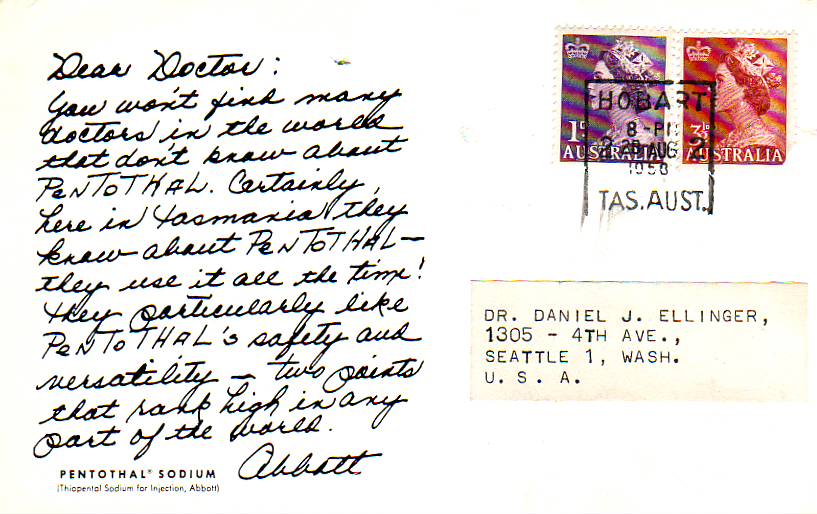 Dear Doctor:
You won't find many
doctors in the world
that don't know about
PENTOTHAL. Certainly,
here in Tasmania they
know about PENTOTHAL—
they use it all the time!
They particularly like
PENTOTHAL's safety and
versatility — two points
that rank high in any
part of the world.
Abbott
PENTOTHAL® SODIUM
(Thiopental Sodium for Injection, Abbott)
1D AUSTRALIA
3½D AUSTRALIA
HOBART
8 - PM
28 AUG
1958
TAS. AUST.
DR. DANIEL J. ELLINGER,
1305 - 4TH AVE.,
SEATTLE 1, WASH.
U. S. A.